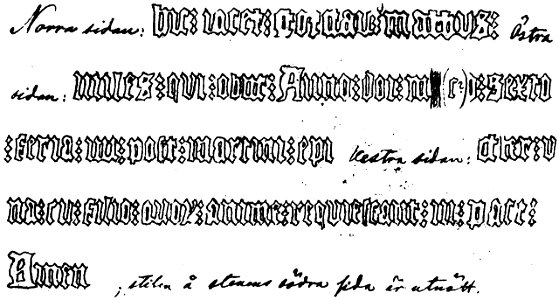 Norra sidan: hic: iacet: dor: gau: mattus: östra
sidan: miles: qui: obiit: Anno: doi: m (c:)d: sexto
: feria: iiii: post: martini: epi Vestra sidan: ther: v
na: cu: filio: quoȝ: anime: requiescant: in: pace:
Amen ; stilen å stenens södra sida är utnött.